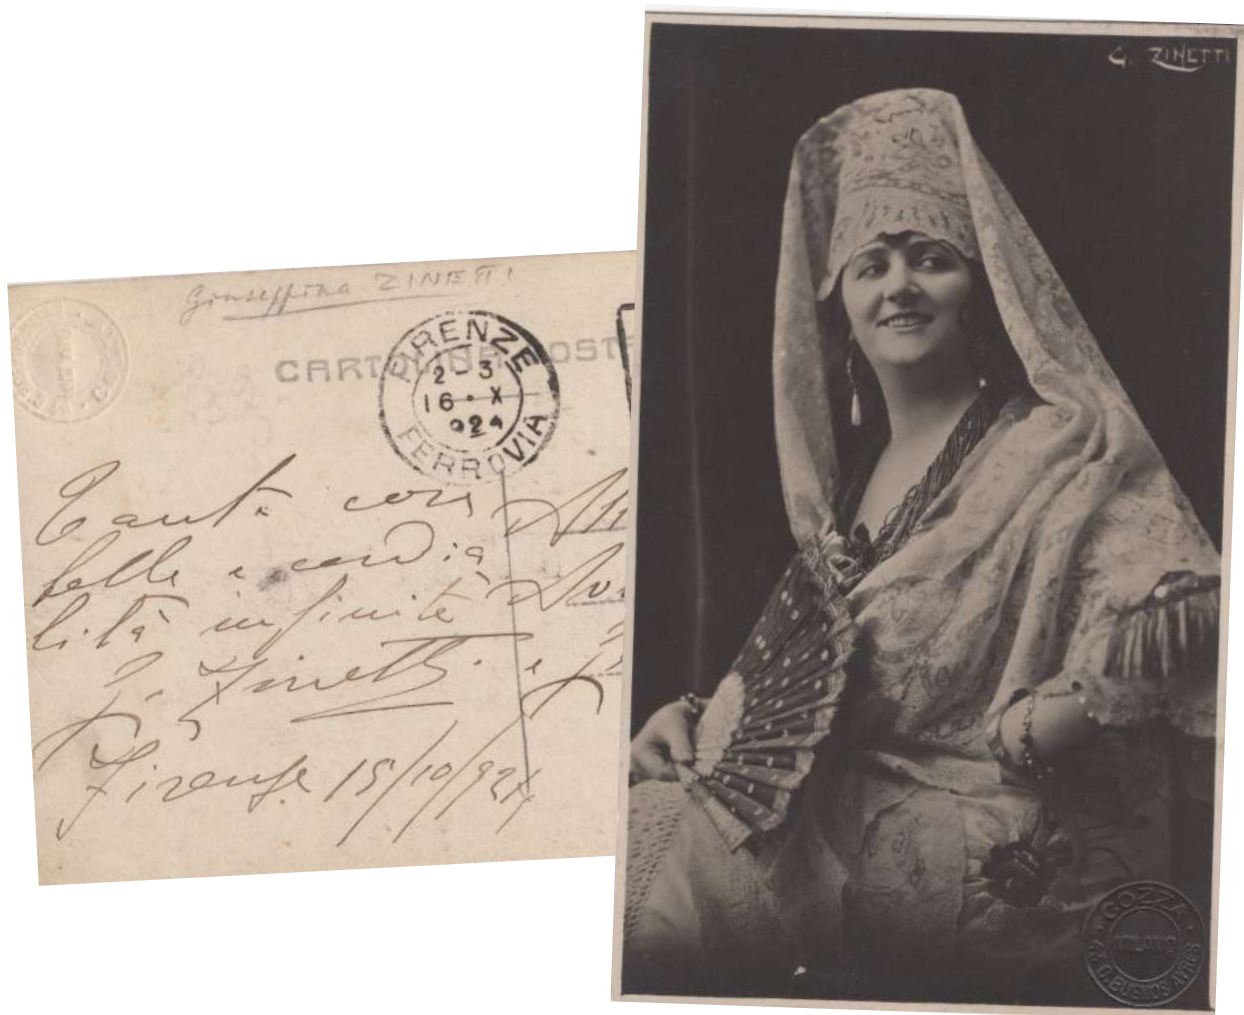 Giuseppina ZINETTI
CARTOLINA POST
FIRENZE
2-3
16·X
924
FERROVIA
Tante cose
belle e cordia
lità infinite
G. Zinetti e
Firenze 15/10/924
G. ZINETTI
GOZZA
MILANO
C. BUENOS AYRES